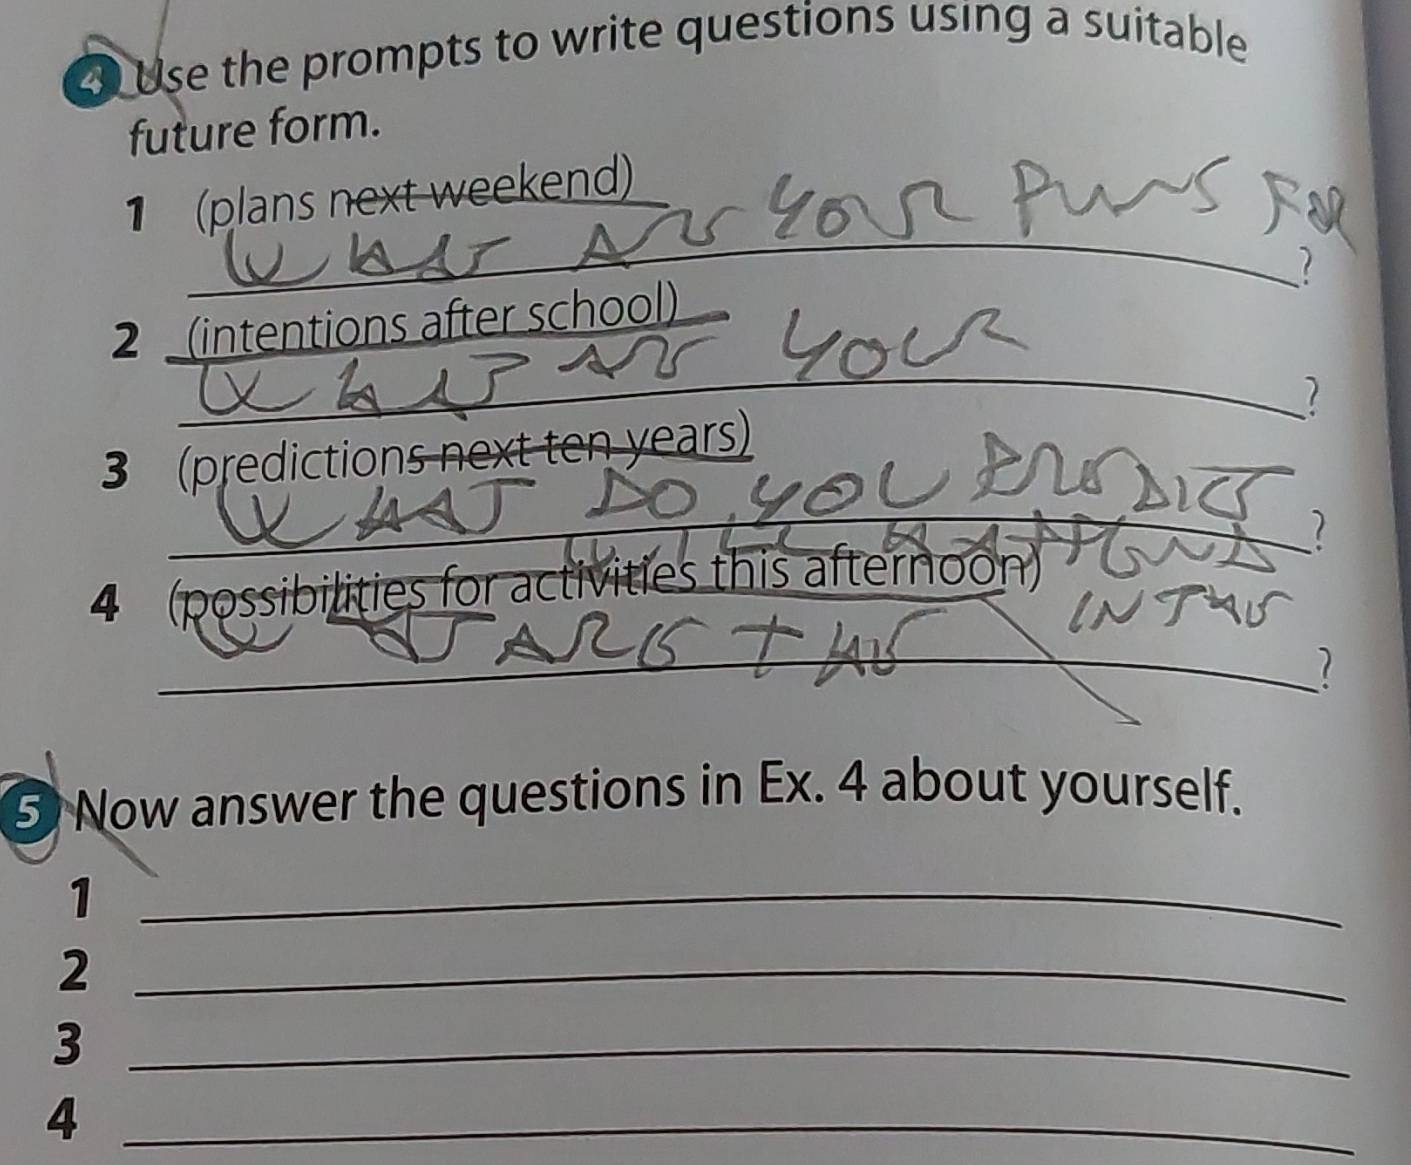 4 Use the prompts to write questions using a suitable
future form.
1 (plans next weekend)
WHAT ARE YOUR PLANS FOR
?
2 (intentions after school)
WHAT ARE YOUR
?
3 (predictions next ten years)
WHAT DO YOU PREDICT
?
WILL HAPPEND
4 (possibilities for activities this afternoon)
IN THE
WHAT ARE THE
?
5 Now answer the questions in Ex. 4 about yourself.
1
2
3
4